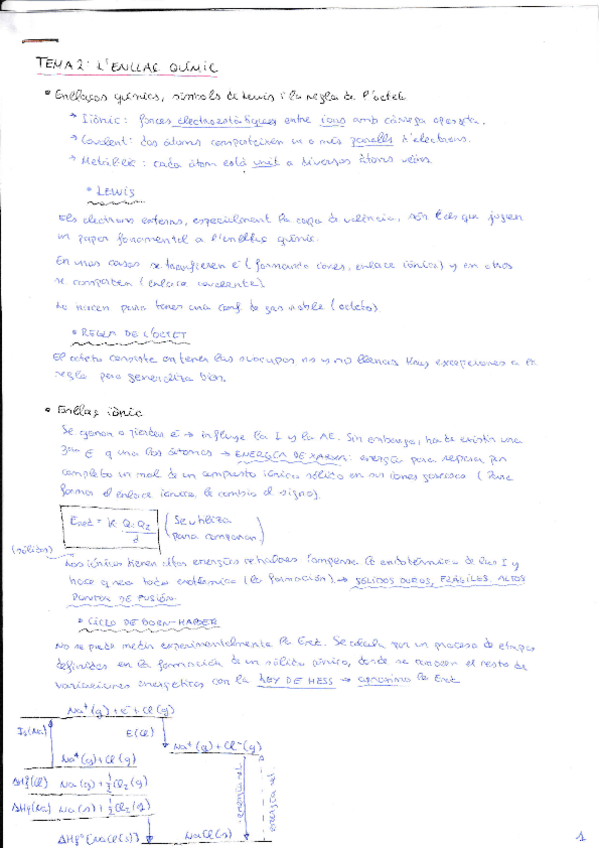 TEMA 2: L'ENLLAÇ QUÍMIC
• Enllaços químics, símbols de Lewis i la regla de l'octet
→ Iònic: forces electroestàtiques entre ions amb càrrega oposada.
→ Covalent: dos àtoms comparteixen un o més parells d'electrons.
→ Metàl·lic: cada àtom està unit a diversos àtoms veïns.
• LEWIS
Els electrons externs, especialment la capa de valència, són els que juguen
un paper fonamental a l'enllaç químic.
En unos casos se transfieren e⁻ (formando iones, enlace iónico) y en otros
se comparten (enlace covalente).
Lo hacen para tener una conf. de gas noble (octeto)
• REGLA DE L'OCTET
El octeto consiste en tener las subcapas ns y np llenas. Hay excepciones a la
regla pero generaliza bien.
• Enllaç iònic
Se ganan o pierden e⁻ → influye la I y la AE. Sin embargo, ha de existir una
3ª E q una los átomos → ENERGÍA DE XARXA: energía para separar por
completo un mol de un compuesto iónico sólido en sus iones gaseosos (Para
formar el enlace iónico, le cambio el signo).
Eret = K Q₁ Q₂ / d (Se utiliza para comparar)
(sólidos)
Los iónicos tienen altas energías reticulares. Compensa lo endotérmico de las I y
hace q sea todo exotérmico (la formación) → SÓLIDOS DUROS, FRÁGILES, ALTOS
PUNTOS DE FUSIÓN.
• CICLO DE BORN-HABER
No se puede medir experimentalmente la Eret. Se calcula por un proceso de etapas
definidas en la formación de un sólido iónico, donde se conocen el resto de
variaciones energéticas con la LEY DE HESS → aproximo la Eret
Na⁺(g) + e⁻ + Cl(g)
I₁(Na)
E(Cl)
Na⁺(g) + Cl⁻(g)
Na(g) + Cl(g)
ΔHf(Cl) Na(g) + ½Cl₂(g)
ΔHf(Na) Na(s) + ½Cl₂(g)
energía ret.
energía ret.
ΔHf°[NaCl(s)]
NaCl(s)
1